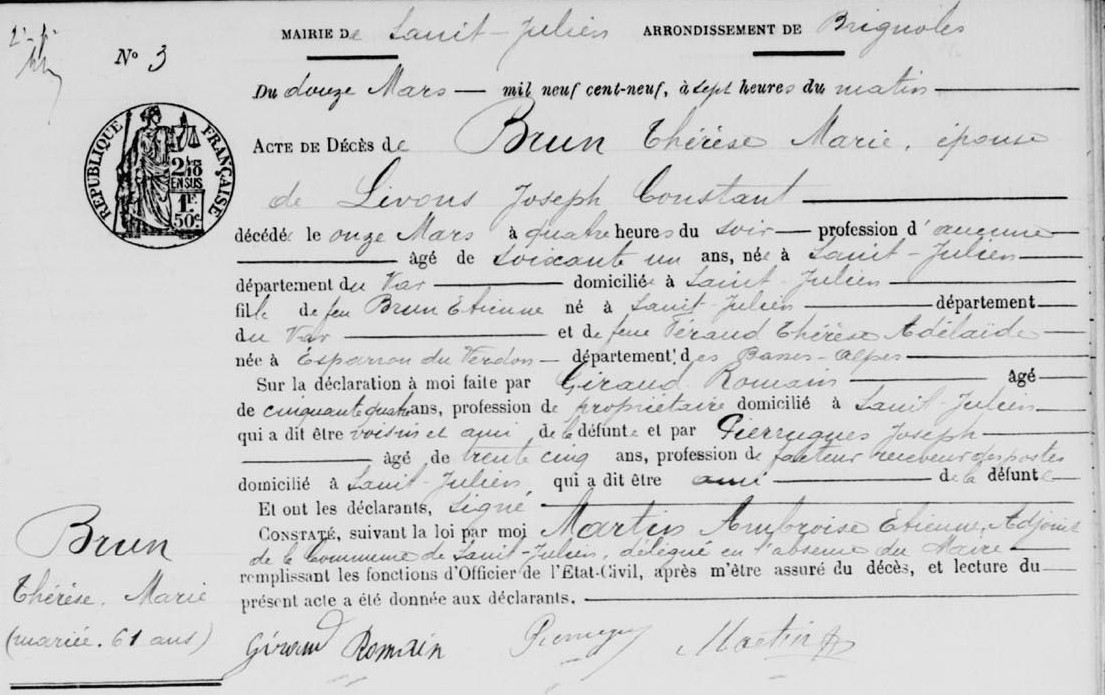 MAIRIE De Saint-Julien ARRONDISSEMENT DE Brignoles
No 3
Du douze Mars — mil neuf cent-neuf, à sept heures du matin
RÉPUBLIQUE FRANÇAISE
2/10
EN SUS
1F
50c
ACTE DE DÉCÈS de Brun Thérèse Marie, épouse
de Livons Joseph Constant
décédée le onze Mars à quatre heures du soir — profession d'aucune
âgé de soixante un ans, née à Saint-Julien
département du Var — domiciliée à Saint-Julien
fille de feu Brun Etienne né à Saint-Julien — département
du Var — et de feue Féraud Thérèse Adélaïde
née à Esparron du Verdon — département des Basses-Alpes
Sur la déclaration à moi faite par Giraud Romain — âgé
de cinquante quatre ans, profession de propriétaire domicilié à Saint-Julien
qui a dit être voisin et ami de la défunte et par Pierrugues Joseph
âgé de trente cinq ans, profession de facteur receveur des postes
domicilié à Saint-Julien, qui a dit être ami — de la défunte
Et ont les déclarants, signé
CONSTATÉ, suivant la loi par moi Martin Ambroise Etienne, Adjoint
de la Commune de Saint-Julien, délégué en l'absence du Maire
remplissant les fonctions d'Officier de l'Etat-Civil, après m'être assuré du décès, et lecture du
présent acte a été donnée aux déclarants.
Brun
Thérèse. Marie
(mariée. 61 ans)
Giraud Romain Pierrugues Martin A